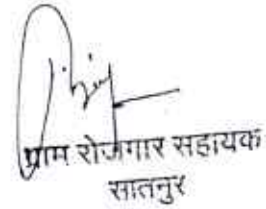 ग्राम रोजगार सहायक
सातनुर